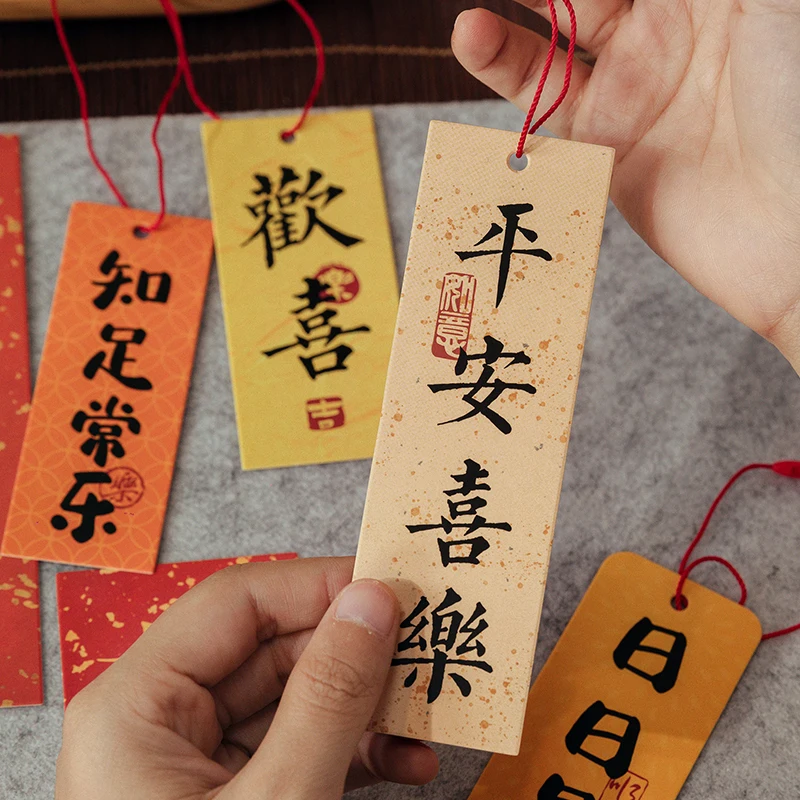 平安喜樂
如意
歡喜
樂
吉
知足常乐
樂
日日